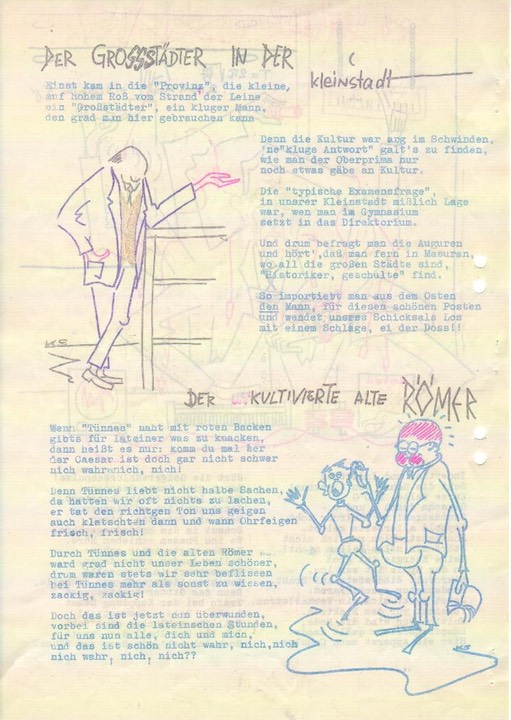 DER GROSSSTÄDTER IN DER
kleinstadt
Einst kam in die "Provinz", die kleine,
auf hohem Roß vom Strand der Leine
ein "Großstädter", ein kluger Mann,
den grad man hier gebrauchen kann
Denn die Kultur war arg im Schwinden,
'ne"kluge Antwort" galt's zu finden,
wie man der Oberprima nur
noch etwas gäbe an Kultur.
Die "typische Examensfrage",
in unsrer Kleinstadt mißlich Lage
war, wen man im Gymnasium
setzt in das Direktorium.
Und drum befragt man die Auguren
und hört',daß man fern in Masuren,
wo all die großen Städte sind,
"Historiker, geschulte" find.
So importiert man aus dem Osten
den Mann, für diesen schönen Posten
und wendet unsres Schicksals Los
mit einem Schlage, ei der Döss!!
KS
DER KULTIVIERTE ALTE RÖMER
Wenn "Tünnes" naht mit roten Backen
gibts für Lateiner was zu knacken,
dann heißt es nur: komm du mal her
der Caesar ist doch gar nicht schwer
nich wahrnich, nich!
Denn Tünnes liebt nicht halbe Sachen,
da hatten wir oft nichts zu lachen,
er tat den richtgen Ton uns geigen
auch klatschten dann und wann Ohrfeigen
frisch, frisch!
Durch Tünnes und die alten Römer
ward grad nicht unser Leben schöner,
drum waren stets wir sehr beflissen
bei Tünnes mehr als sonst zu wissen,
zackig, zackig!
Doch das ist jetzt nun überwunden,
vorbei sind die lateinschen Stunden,
für uns nun alle, dich und mich,
und das ist schön nicht wahr, nich,nich
nich wahr, nich, nich??
KS